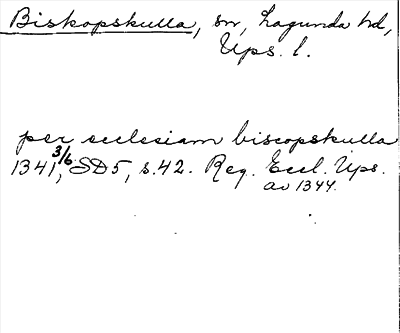 Biskopskulla, sn, Lagunda hd,
Ups. l.
per ecclesiam biscopskulla
1341 3/6, SD5, s.42. Reg. Eccl. Ups.
av 1344.